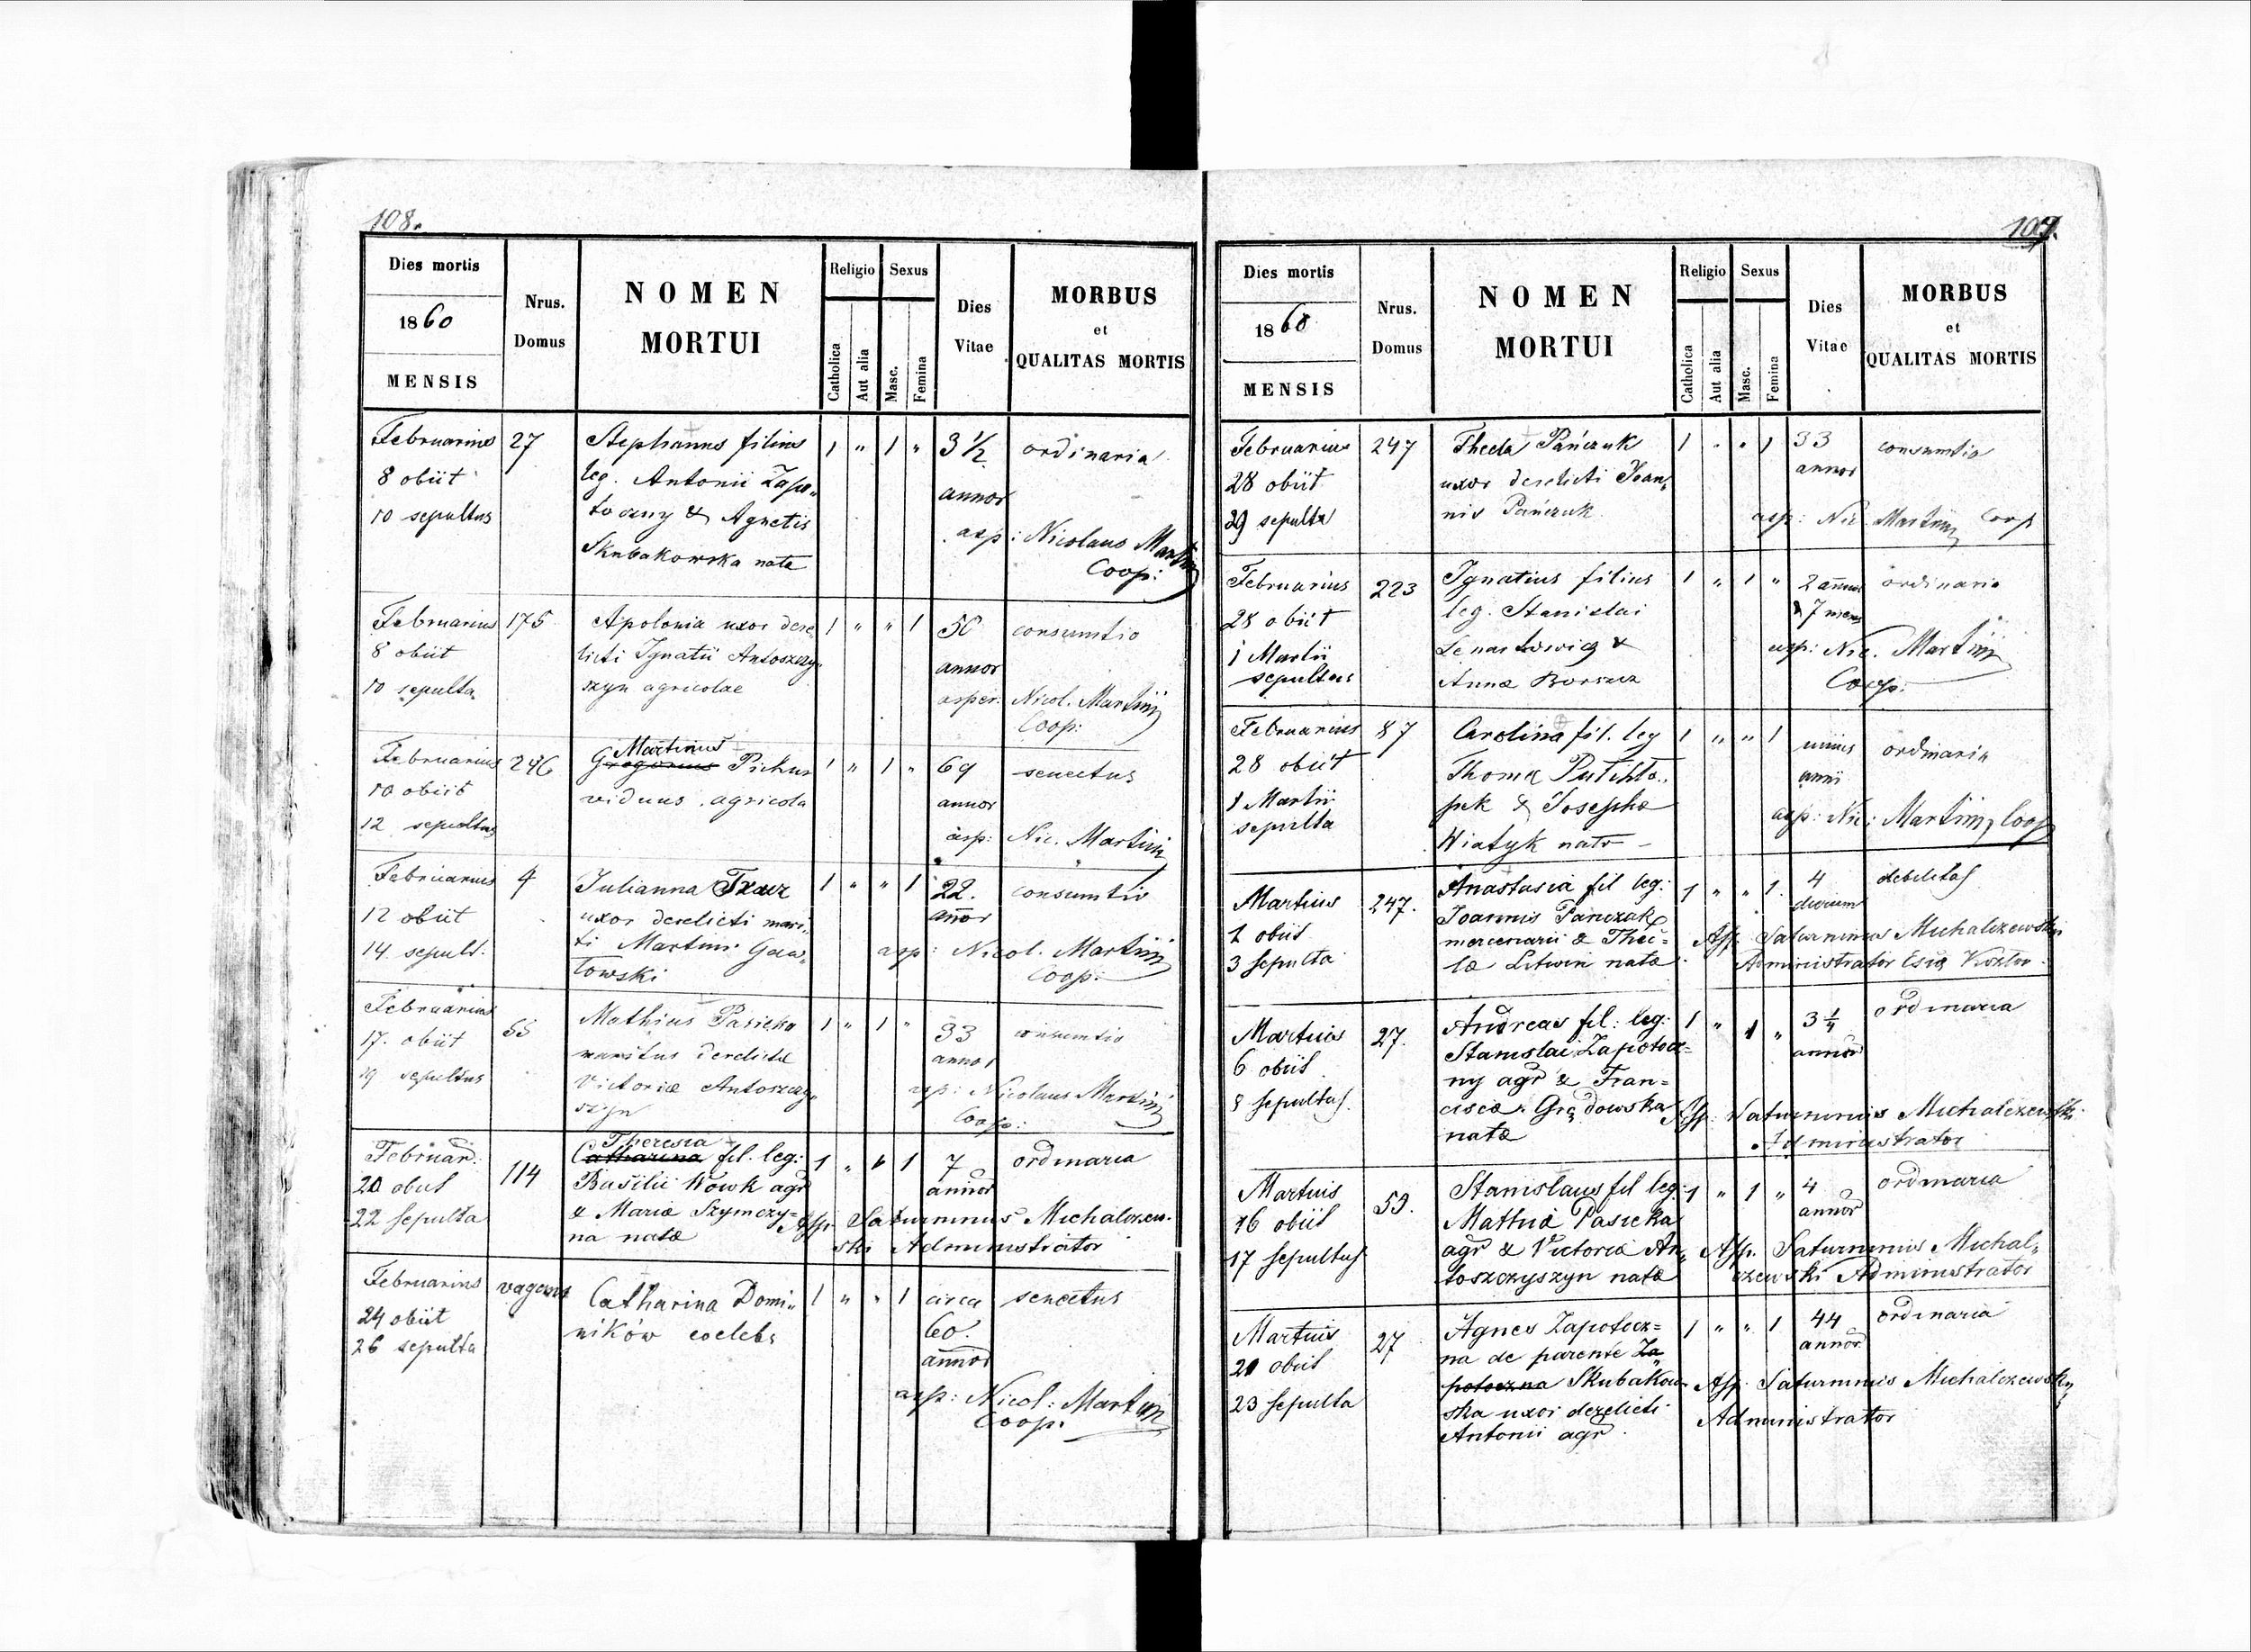 108.
Dies mortis
1860
MENSIS
Nrus.
Domus
NOMEN
MORTUI
Religio
Catholica
Aut alia
Sexus
Masc.
Femina
Dies
Vitae
MORBUS
et
QUALITAS MORTIS
Februarius 27 Stephanus filius 1 " 1 " 3 1/2 ordinaria
8 obiit leg. Antonii Zapo„
10 sepultus toczny & Agnetis annor
Skubakowska nata asp: Nicolaus Martini
Coop:
Februarius 175 Apolonia uxor dere 1 " " 1 50 consumtio
8 obiit licti Ignatii Antoszczy„ annor
10 sepulta szyn agricolae asper: Nicol. Martini
Coop:
Martinus
Februarius 246 Gregorius Pichur 1 " 1 " 69 senectus
10 obiit viduus agricola annor
12 sepultus asp: Nic. Martini
Februarius 4 Julianna Tkacz 1 " " 1 22. consumtio
12 obiit uxor derelicti mari„ annor
14 sepult. ti Martini Gaw„ asp: Nicol. Martini
łowski Coop:
Februarius 55 Mathias Pasieka 1 " 1 " 33 consumtio
17. obiit maritus derelictae annor
19 sepultus Victoriae Antoszczy„ asp: Nicolaus Martini
szyn Coop:
Theresia
Februar. 114 Catharina fil. leg: 1 " " 1 7 ordinaria
20 obiit Basilii Wowk agr annor
22 sepulta & Maria Szymczy= Asp. Saturninus Michalczew-
na nata ski Administrator
Februarius vagans Catharina Domi„ 1 " " 1 circa senectus
24 obiit ników coelebs 60.
26 sepulta annor
asp: Nicol: Martini
Coop.
109.
Dies mortis
1860
MENSIS
Nrus.
Domus
NOMEN
MORTUI
Religio
Catholica
Aut alia
Sexus
Masc.
Femina
Dies
Vitae
MORBUS
et
QUALITAS MORTIS
Februarius 247 Thecla Pańczuk 1 " " 1 33 consumtio
28 obiit uxor derelicti Joan„ annor
29 sepulta nis Pańczuk asp: Nic. Martini Coop
Februarius 223 Ignatius filius 1 " 1 " 2 annor ordinaria
28 obiit leg. Stanislai & 7 mens
1 Martii Lenartowicz & asp: Nic. Martini
sepultus Anna Borszcz Coop:
Februarius 87 Carolina fil. leg 1 " " 1 unius ordinaria
28 obiit Thoma anni
1 Martii pek & Josepha asp: Nic: Martini Coop
sepulta Wiatyk nata
Martius 247. Anastasia fil leg: 1 " " 1. 4 debilitas
1 obiit Joannis Panczak dierum
3 sepulta mercenarii & Thec= Asp. Saturninus Michalczewski
lae Litwin nata Administrator
Martius 27. Andreas fil: leg: 1 " 1 " 3 1/4 ordinaria
6 obiit Stanislai Zapotocz= annor
8 sepultus. ny agr & Fran=
cisca Grądowska Asp. Saturninus Michalczewski
nata Administrator
Martius 59. Stanislaus fil leg: 1 " 1 " 4 ordinaria
16 obiit Mathia Pasieka annor
17 sepultus agr & Victoria An„ Asp. Saturninus Michal„
toszczyszyn nata czewski Administrator
Martius 27 Agnes Zapotocz= 1 " " 1 44 ordinaria
21 obiit na de parente Za„ annor
23 sepulta potoczna Skubakow Asp. Saturninus Michalczewski
ska uxor derelicti Administrator
Antonii agr.